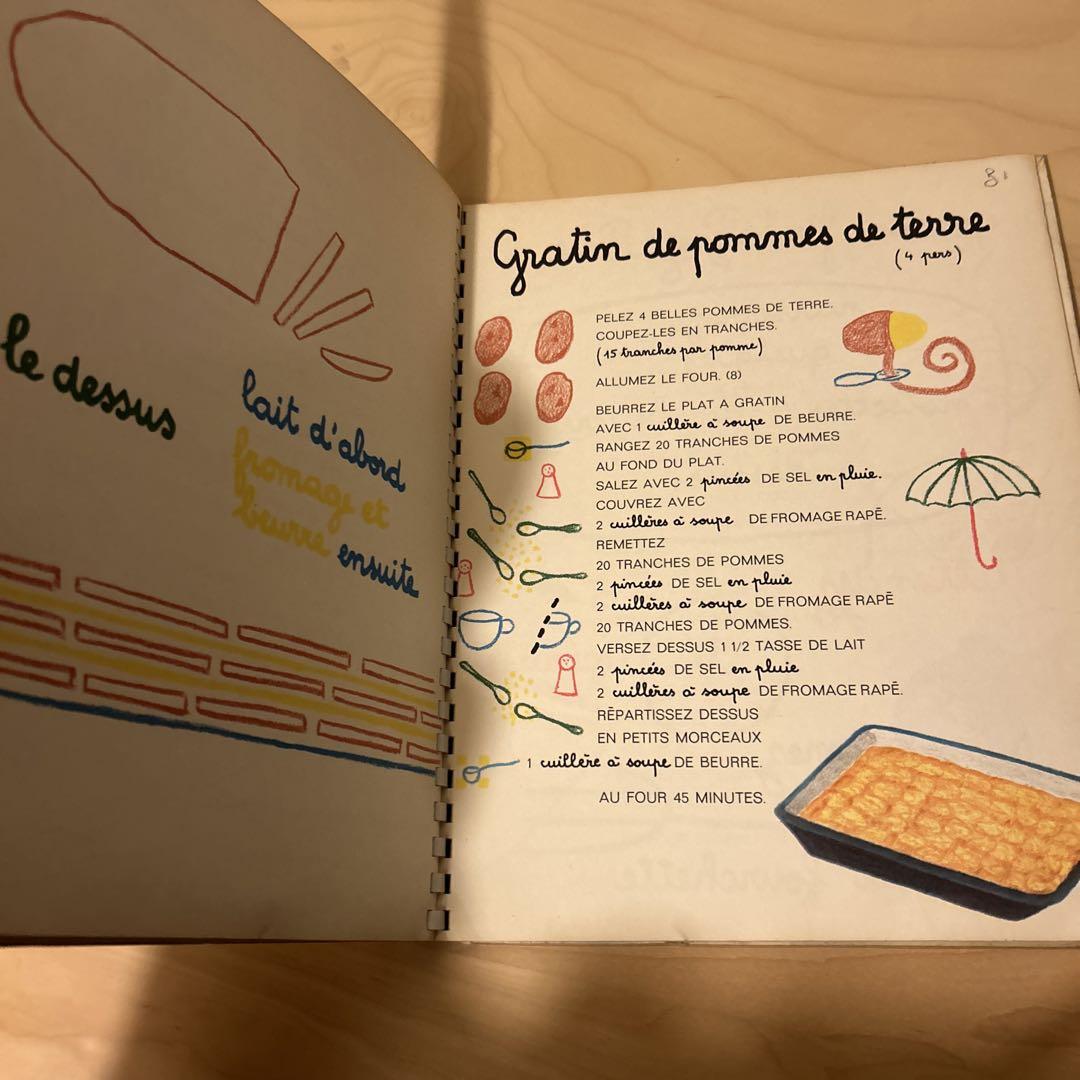 le dessus
lait d'abord
fromage et
beurre ensuite
Gratin de pommes de terre
(4 pers)
PELEZ 4 BELLES POMMES DE TERRE.
COUPEZ-LES EN TRANCHES.
(15 tranches par pomme)
ALLUMEZ LE FOUR. (8)
BEURREZ LE PLAT A GRATIN
AVEC 1 cuillère à soupe DE BEURRE.
RANGEZ 20 TRANCHES DE POMMES
AU FOND DU PLAT.
SALEZ AVEC 2 pincées DE SEL en pluie.
COUVREZ AVEC
2 cuillères à soupe DE FROMAGE RAPĒ.
REMETTEZ
20 TRANCHES DE POMMES
2 pincées DE SEL en pluie
2 cuillères à soupe DE FROMAGE RAPĒ
20 TRANCHES DE POMMES.
VERSEZ DESSUS 1 1/2 TASSE DE LAIT
2 pincées DE SEL en pluie
2 cuillères à soupe DE FROMAGE RAPĒ.
RĒPARTISSEZ DESSUS
EN PETITS MORCEAUX
1 cuillère à soupe DE BEURRE.
AU FOUR 45 MINUTES.